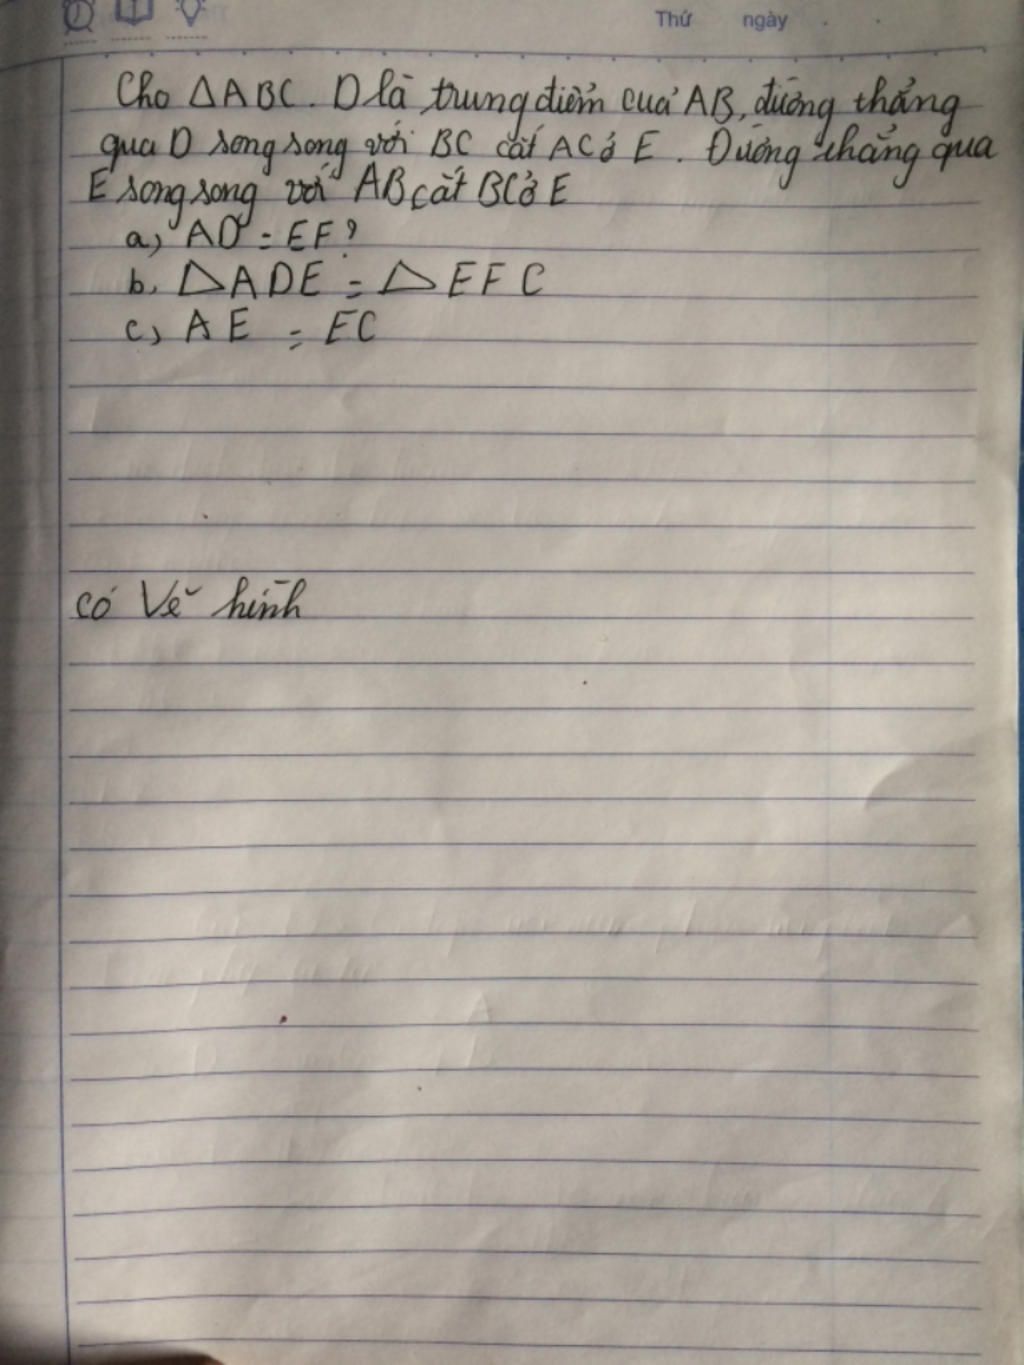 Thứ ngày
Cho ΔABC. D là trung điểm của AB, đường thẳng
qua D song song với BC cắt AC ở E. Đường thẳng qua
E song song với AB cắt BC ở E
a, AD = EF?
b, ΔADE = ΔEFC
c, AE = EC
có vẽ hình